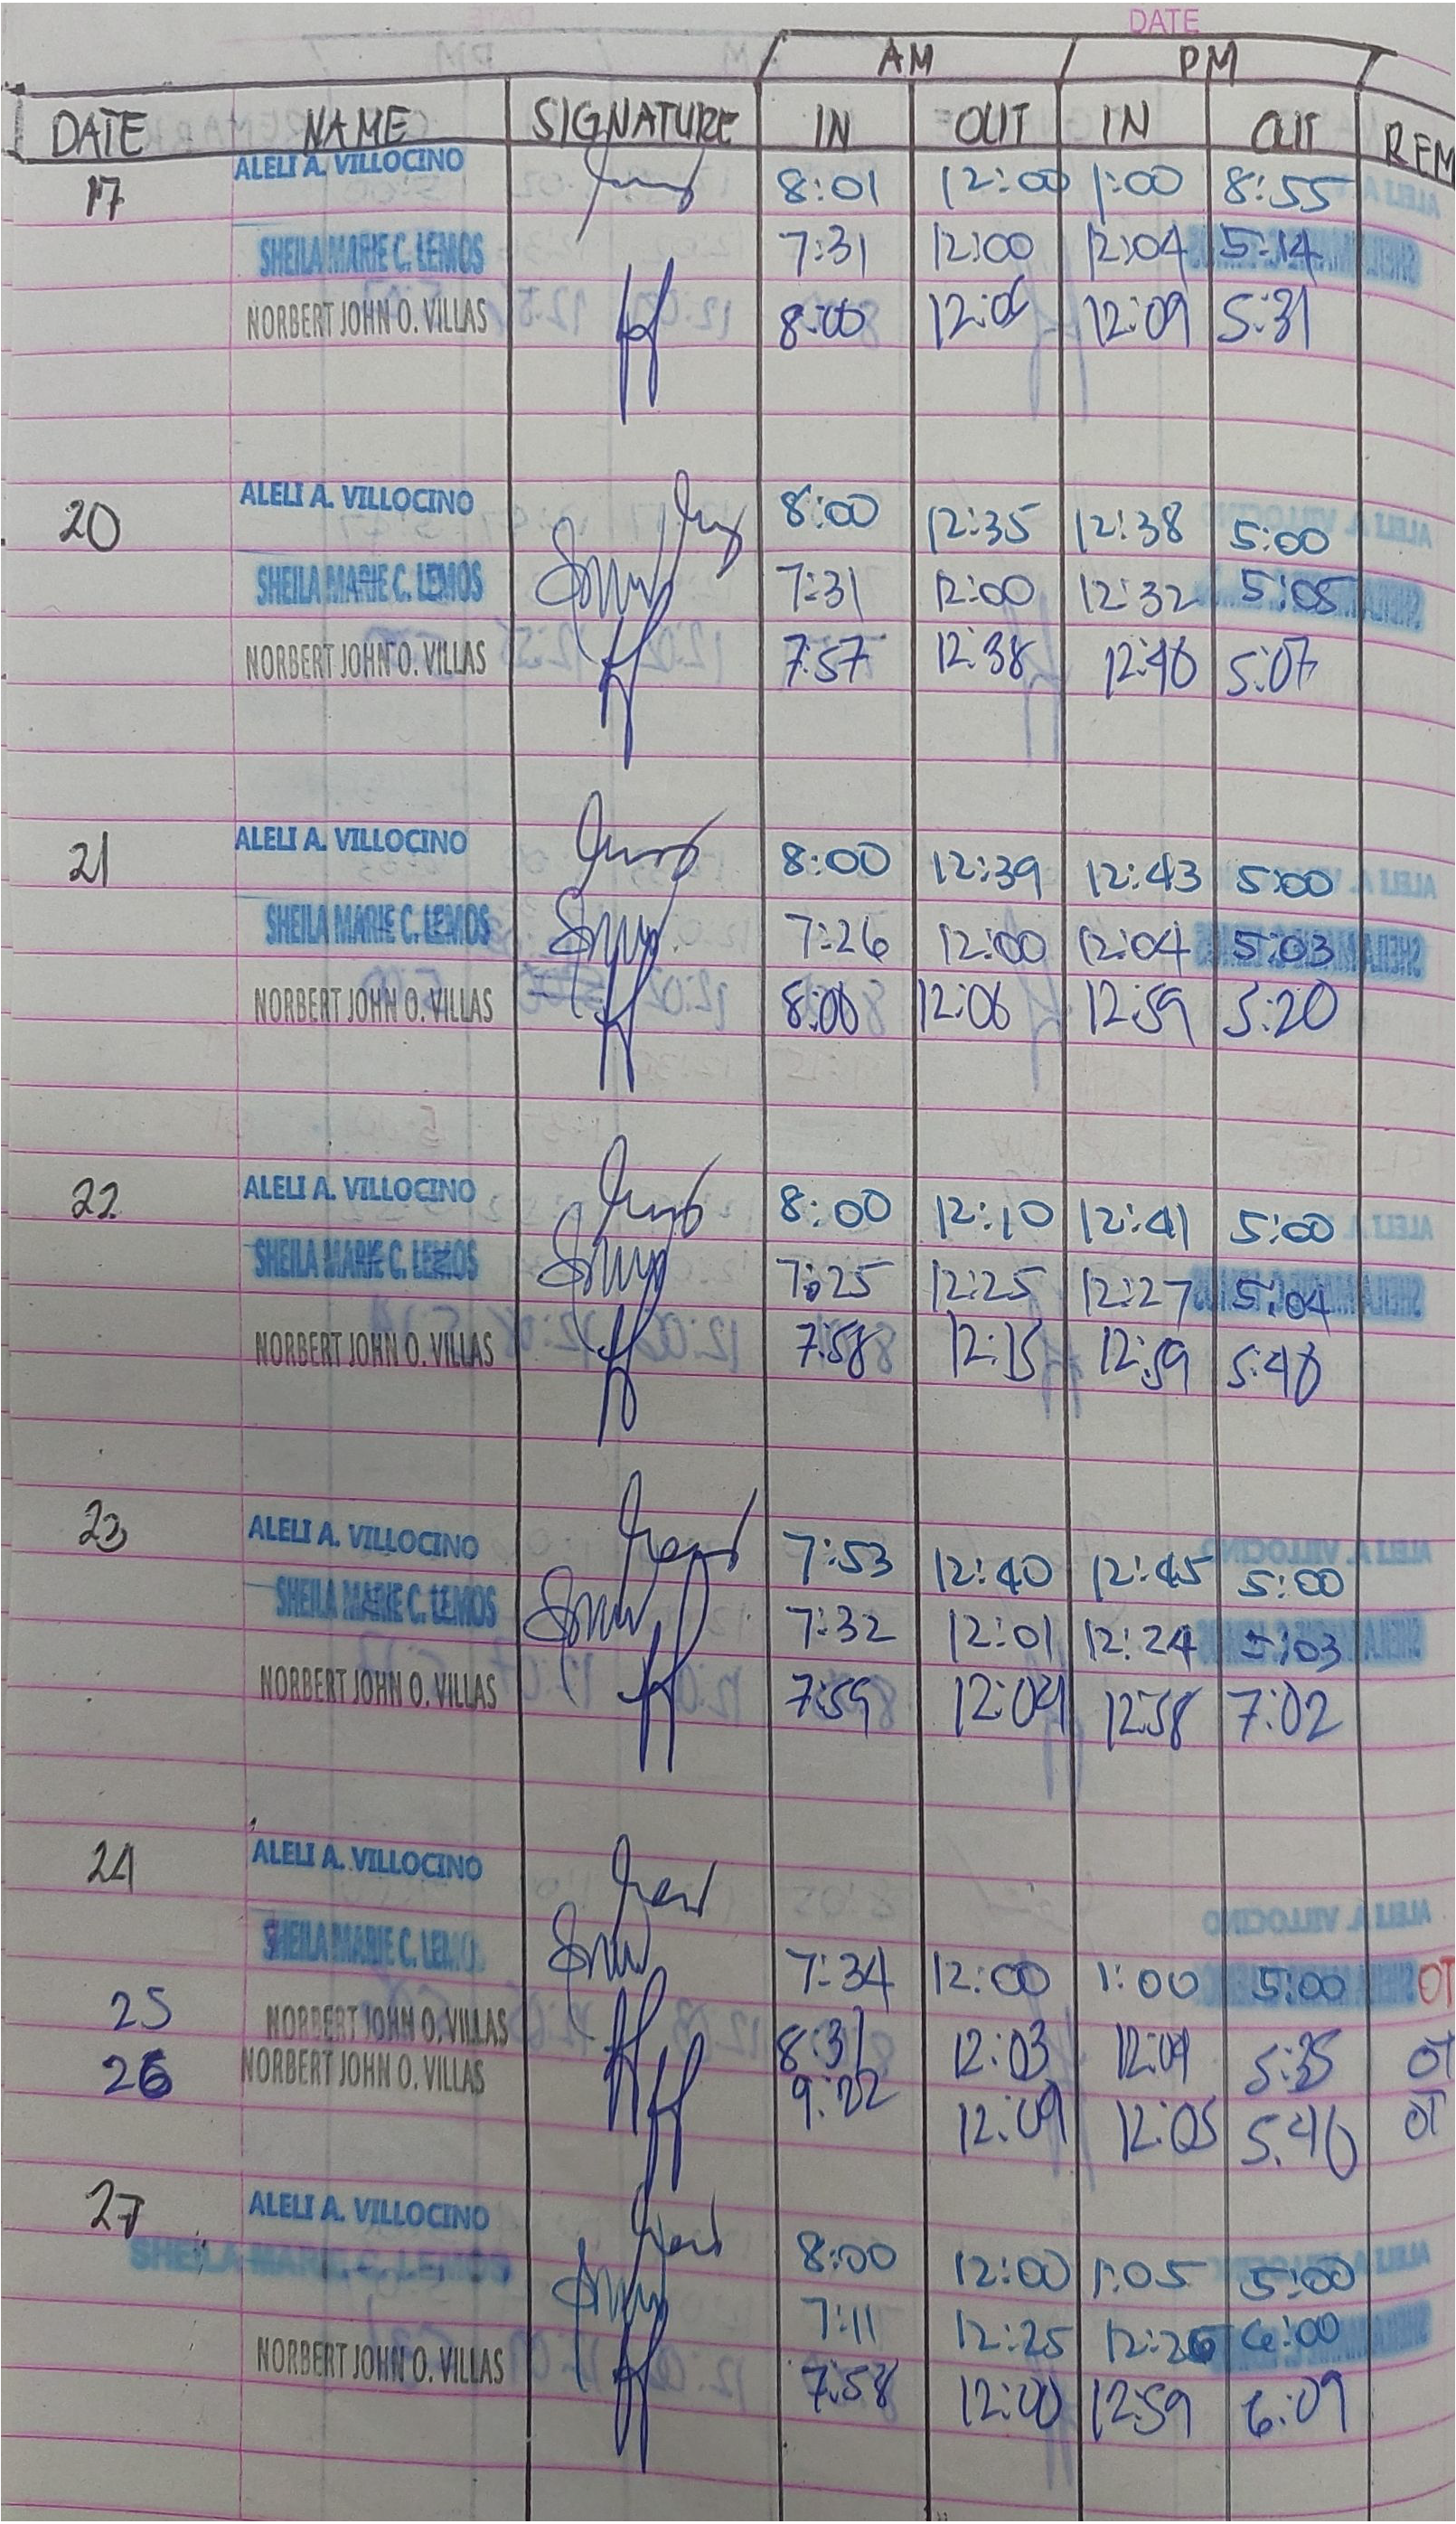 DATE
AM PM
DATE NAME SIGNATURE IN OUT IN OUT REM
17 ALELI A. VILLOCINO 8:01 12:00 1:00 8:55
SHEILA MARIE C. LEMOS 7:31 12:00 12:04 5:14
NORBERT JOHN O. VILLAS 8:00 12:06 12:09 5:31
20 ALELI A. VILLOCINO 8:00 12:35 12:38 5:00
SHEILA MARIE C. LEMOS 7:31 12:00 12:32 5:05
NORBERT JOHN O. VILLAS 7:57 12:38 12:40 5:07
21 ALELI A. VILLOCINO 8:00 12:39 12:43 5:00
SHEILA MARIE C. LEMOS 7:26 12:00 12:04 5:03
NORBERT JOHN O. VILLAS 8:00 12:06 12:59 5:20
22 ALELI A. VILLOCINO 8:00 12:10 12:41 5:00
SHEILA MARIE C. LEMOS 7:25 12:25 12:27 5:04
NORBERT JOHN O. VILLAS 7:58 12:15 12:59 5:40
23 ALELI A. VILLOCINO 7:53 12:40 12:45 5:00
SHEILA MARIE C. LEMOS 7:32 12:01 12:24 5:03
NORBERT JOHN O. VILLAS 7:59 12:04 12:58 7:02
24 ALELI A. VILLOCINO
SHEILA MARIE C. LEMOS 7:34 12:00 1:00 5:00 OT
25 NORBERT JOHN O. VILLAS 8:31 12:03 12:09 5:35 OT
26 NORBERT JOHN O. VILLAS 9:22 12:09 12:05 5:40 OT
27 ALELI A. VILLOCINO 8:00 12:00 1:05 5:00
SHEILA MARIE C. LEMOS 7:11 12:25 12:26 6:00
NORBERT JOHN O. VILLAS 7:58 12:00 12:59 6:09